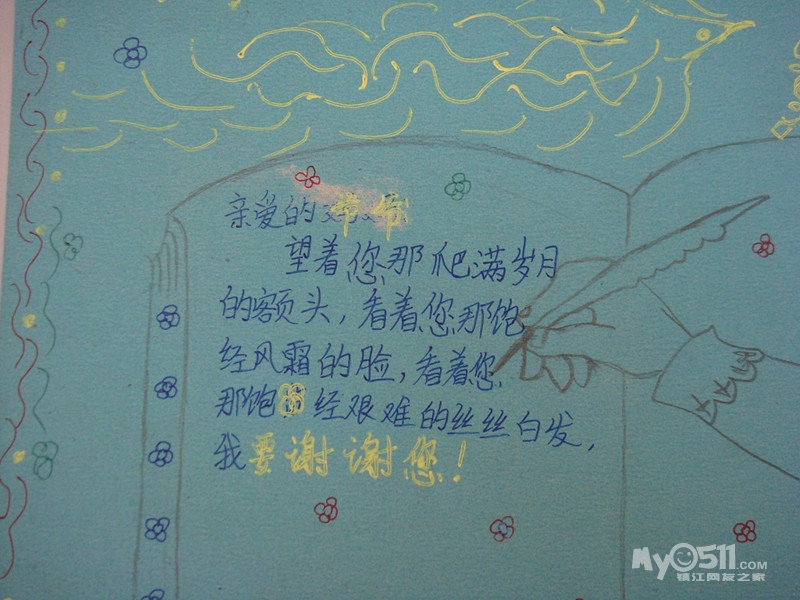 亲爱的爷爷
望着您那爬满岁月
的额头，看着您那饱
经风霜的脸，看着您
那饱经艰难的丝丝白发，
我要谢谢您！
MY0511.COM
镇江网友之家